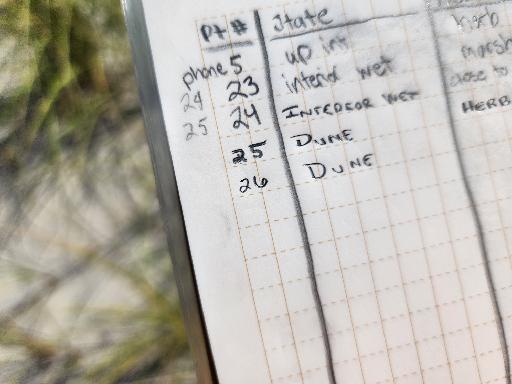 Pt # State
phone 5 up int herb
24 23 interd wet marsh
25 24 INTERIOR WET close to
25 DUNE HERB
26 DUNE